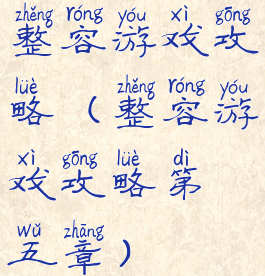 zhěng róng yóu xì gōng
整容游戏攻
lüè zhěng róng yóu
略（整容游
xì gōng lüè dì
戏攻略第
wǔ zhāng
五章）